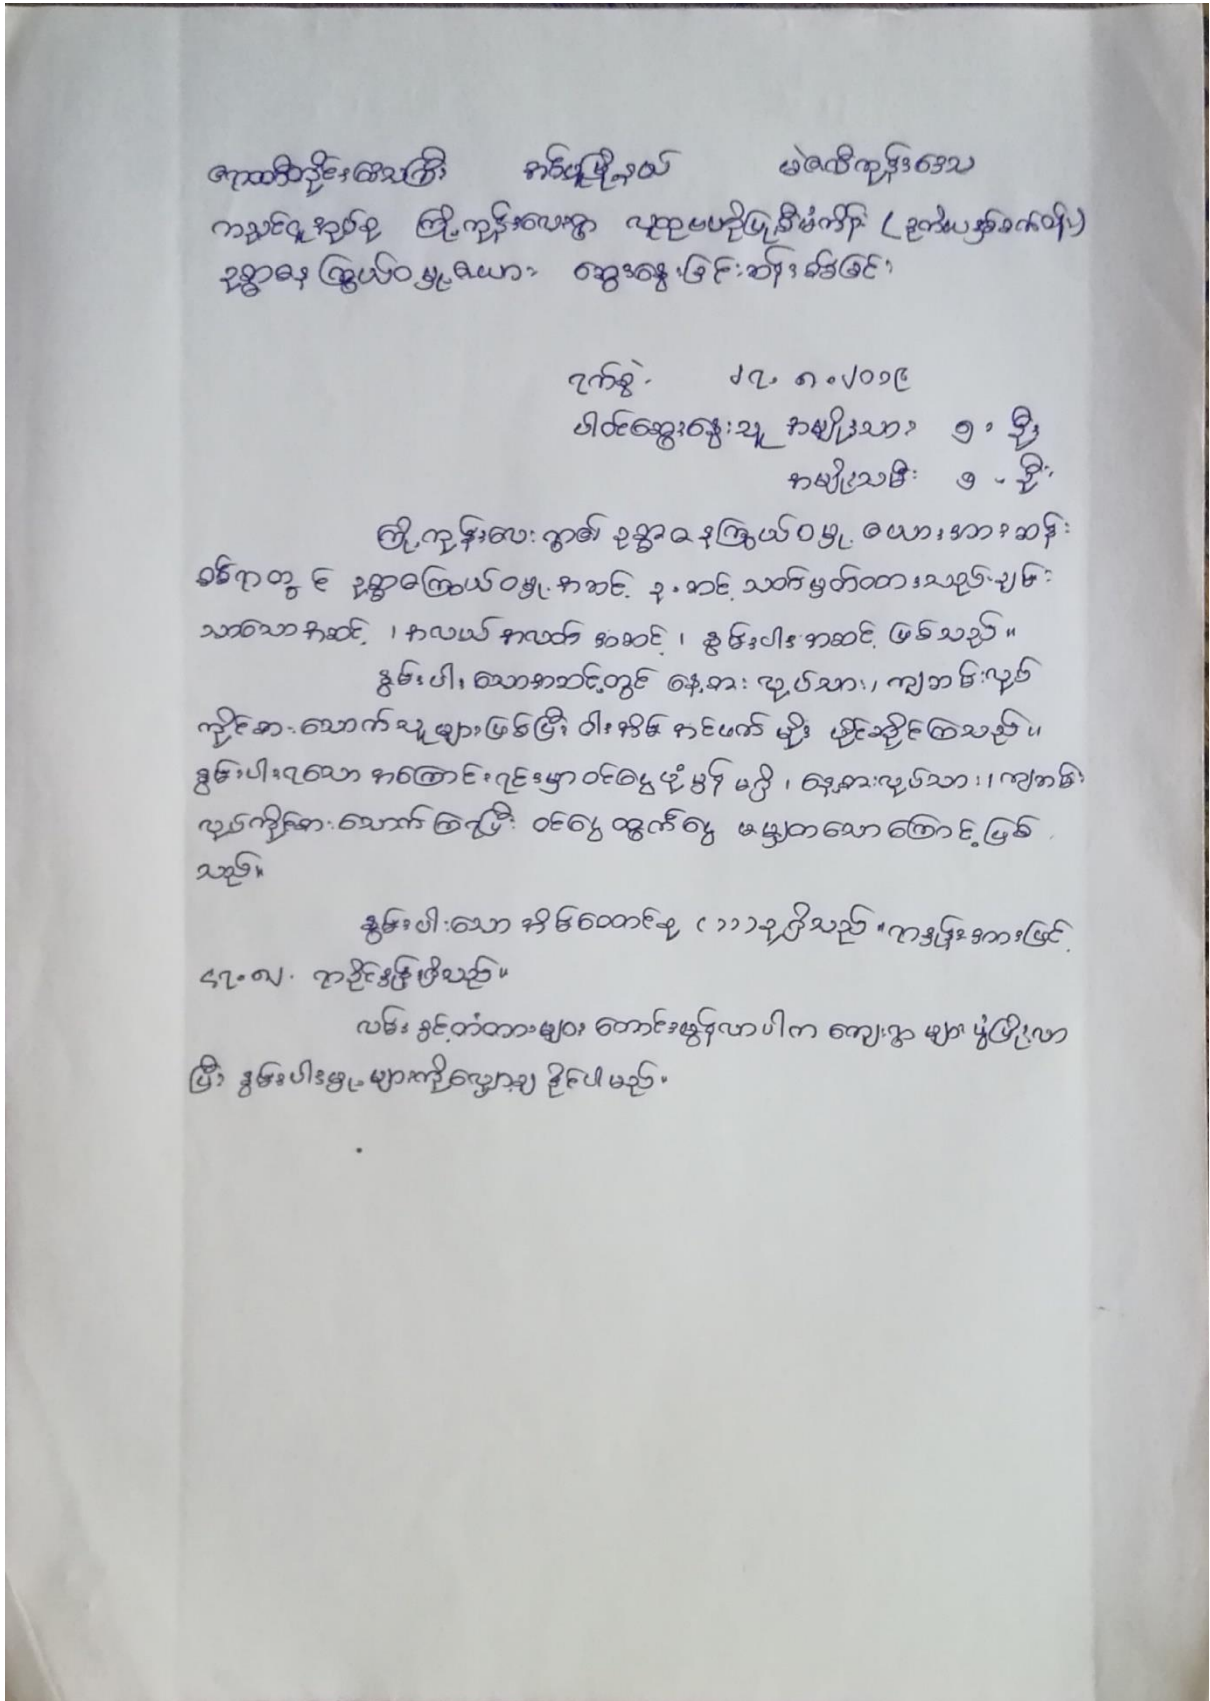 ဧရာဝတီတိုင်းဒေသကြီး အင်္ဂပူမြို့နယ် မဲဇလီကုန်းဒေသ
ကညင်လူအုပ်စု ကြို့ကုန်းလေးရွာ လူထုဗဟိုပြုစီမံကိန်း (ဒုတိယနှစ်ဝက်
ဥစ္စာဓန ကြွယ်ဝမှုဇယား ဆွေးနွေးခြင်းဆန်းစစ်ခြင်း
ရက်စွဲ- ၁၇.၈.၂၀၁၉
ပါဝင်ဆွေးနွေးသူ အမျိုးသား ၅ - ဦး
အမျိုးသမီး ၅ - ဦး
ကြို့ကုန်းလေးရွာ၏ ဥစ္စာဓနကြွယ်ဝမှုဇယားအားဆန်း
စစ်ရာတွင် ဥစ္စာဓကြွယ်ဝမှုအဆင့် ၃-ဆင့် သတ်မှတ်ထားသည်။ချမ်း
သာသောအဆင့်၊ အလယ်အလတ်အဆင့်၊ နွမ်းပါးအဆင့် ဖြစ်သည်။
နွမ်းပါးသောအဆင့်တွင် နေ့စားလုပ်သား၊ ကျဘမ်းလုပ်
ကိုင်စားသောက်သူများဖြစ်ပြီး ဝါးအိမ် အင်ဖက်မိုး ပိုင်ဆိုင်ကြသည်။
နွမ်းပါးရသော အကြောင်းရင်းမှာဝင်ငွေပုံမှန်မရှိ၊ နေ့စားလုပ်သား၊ ကျဘမ်း
လုပ်ကိုင်စားသောက်ကြရပြီး ဝင်ငွေထွက်ငွေ မမျှတသောကြောင့်ဖြစ်
သည်။
နွမ်းပါးသော အိမ်ထောင်စု (၁၁)စုရှိသည်။ရာနှုန်းအားဖြင့်
၄၇.၈၂ ရာခိုင်နှုန်းရှိသည်။
လမ်းနှင့်တံတားများ ကောင်းမွန်လာပါက ကျေးရွာများ ဖွံ့ဖြိုးလာ
ပြီး နွမ်းပါးမှုများကိုလျှော့ချနိုင်ပါမည်။